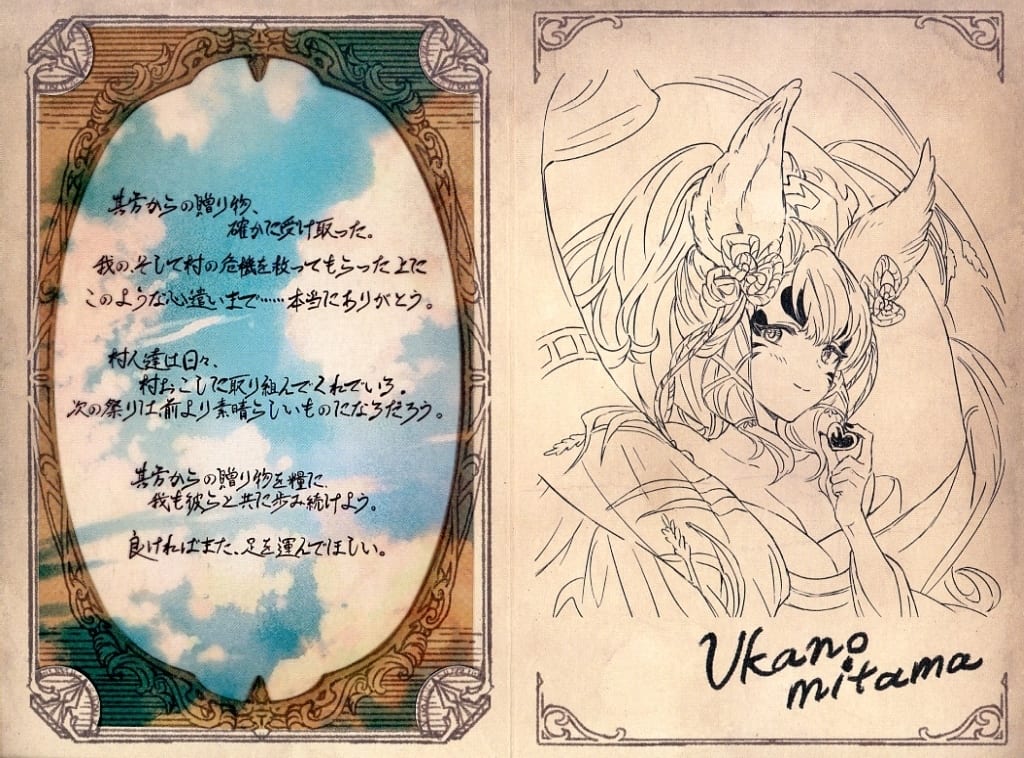 其方からの贈り物、
確かに受け取った。
我の、そして村の危機を救ってもらった上に
このような心遣いまで……本当にありがとう。
村人達は日々、
村おこしに取り組んでくれている。
次の祭りは前より素晴らしいものになるだろう。
其方からの贈り物を糧に、
我も彼らと共に歩み続けよう。
良ければまた、足を運んでほしい。
Ukano
mitama